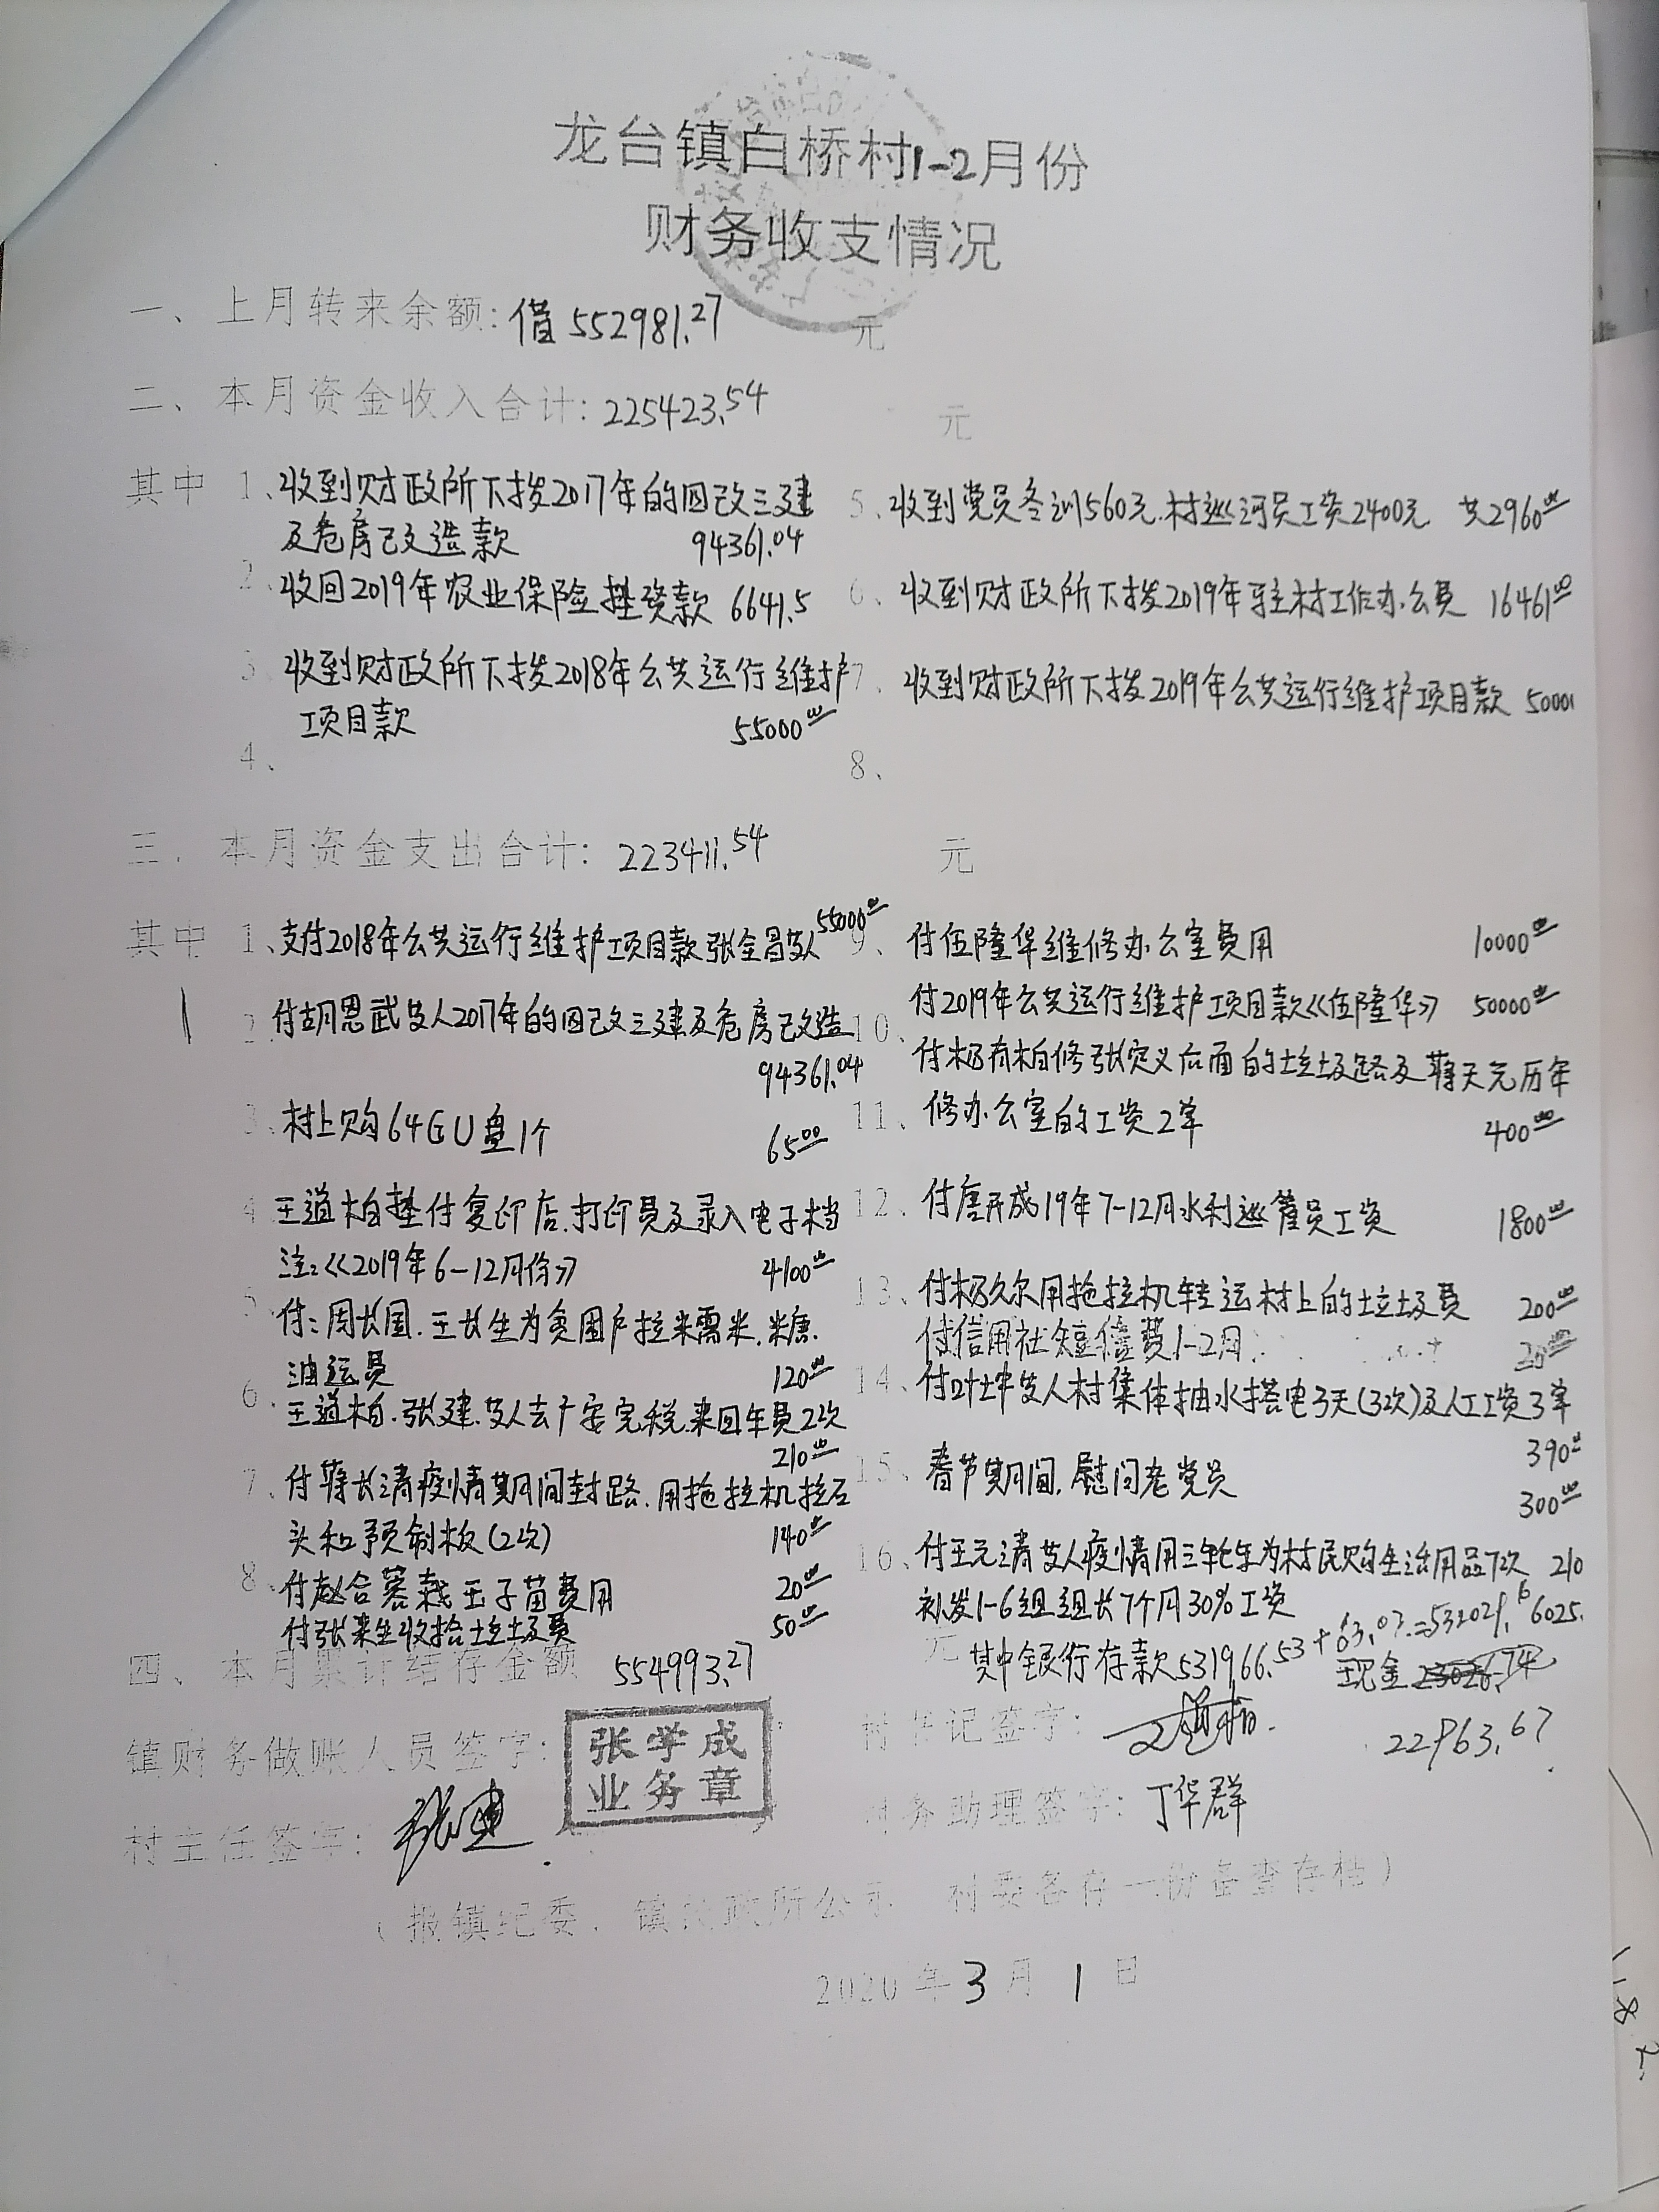 龙台镇白桥村1-2月份
财务收支情况
一、上月转来余额: 借552981.27 元
二、本月资金收入合计: 225423.54 元
其中 1、收到财政所下拨2017年的四改三建
及危房改造款 94361.04
2、收回2019年农业保险垫资款 6641.5
3、收到财政所下拨2018年公共运行维护
项目款 55000.00
4、
5、收到党员冬训560元.村巡河员工资2400元 共2960.00
6、收到财政所下拨2019年驻村工作办公费 16461.00
7、收到财政所下拨2019年公共运行维护项目款 5000
8、
三、本月资金支出合计: 223411.54 元
其中 1、支付2018年公共运行维护项目款张全昌等人 55000.00
2、付胡恩武等人2017年的四改三建及危房改造
94361.04
3、村上购64GU盘1个 65.00
4、王道柏垫付复印店.打印费及录入电子档
注:《2019年6-12月份》 4100.00
5、付:周长国.王长生为贫困户拉米需米.糖.
油运费 120.00
6、王道柏.张建.等人去广安完税.来回车费2次
210.00
7、付蒋长清疫情期间封路.用拖拉机拉石
头和预制板(2次) 140.00
8、付赵合蓉栽玉子苗费用 20.00
付张来生收拾垃圾费 50.00
9、付伍隆华维修办公室费用 10000.00
10、付2019年公共运行维护项目款《伍隆华》 50000.00
付杨有柏修张定义后面的垃圾路及蒋天元历年
11、修办公室的工资2单 400.00
12、付唐开成19年7-12月水利巡管员工资 1800.00
13、付杨久尔用拖拉机转运村上的垃圾费 200.00
付信用社短信费1-2月 20.00
14、付叶坤等人村集体抽水搭电3天(3次)及人工工资3单
390
15、春节期间,慰问老党员 300.00
16、付王元清等人疫情用三轮车为村民购生活用品7次 210
补发1-6组组长7个月30%工资 6025.
四、本月累计结存金额 554993.27 元 其中银行存款531966.53+63.07=532029.6
现金
22963.67
镇财务做账人员签字: 张学成
业务章
村书记签字:
村主任签字: 张建
财务助理签字: 丁华群
(报镇纪委、镇财政所公示 村委各存一份备查存档)
2020年3月1日